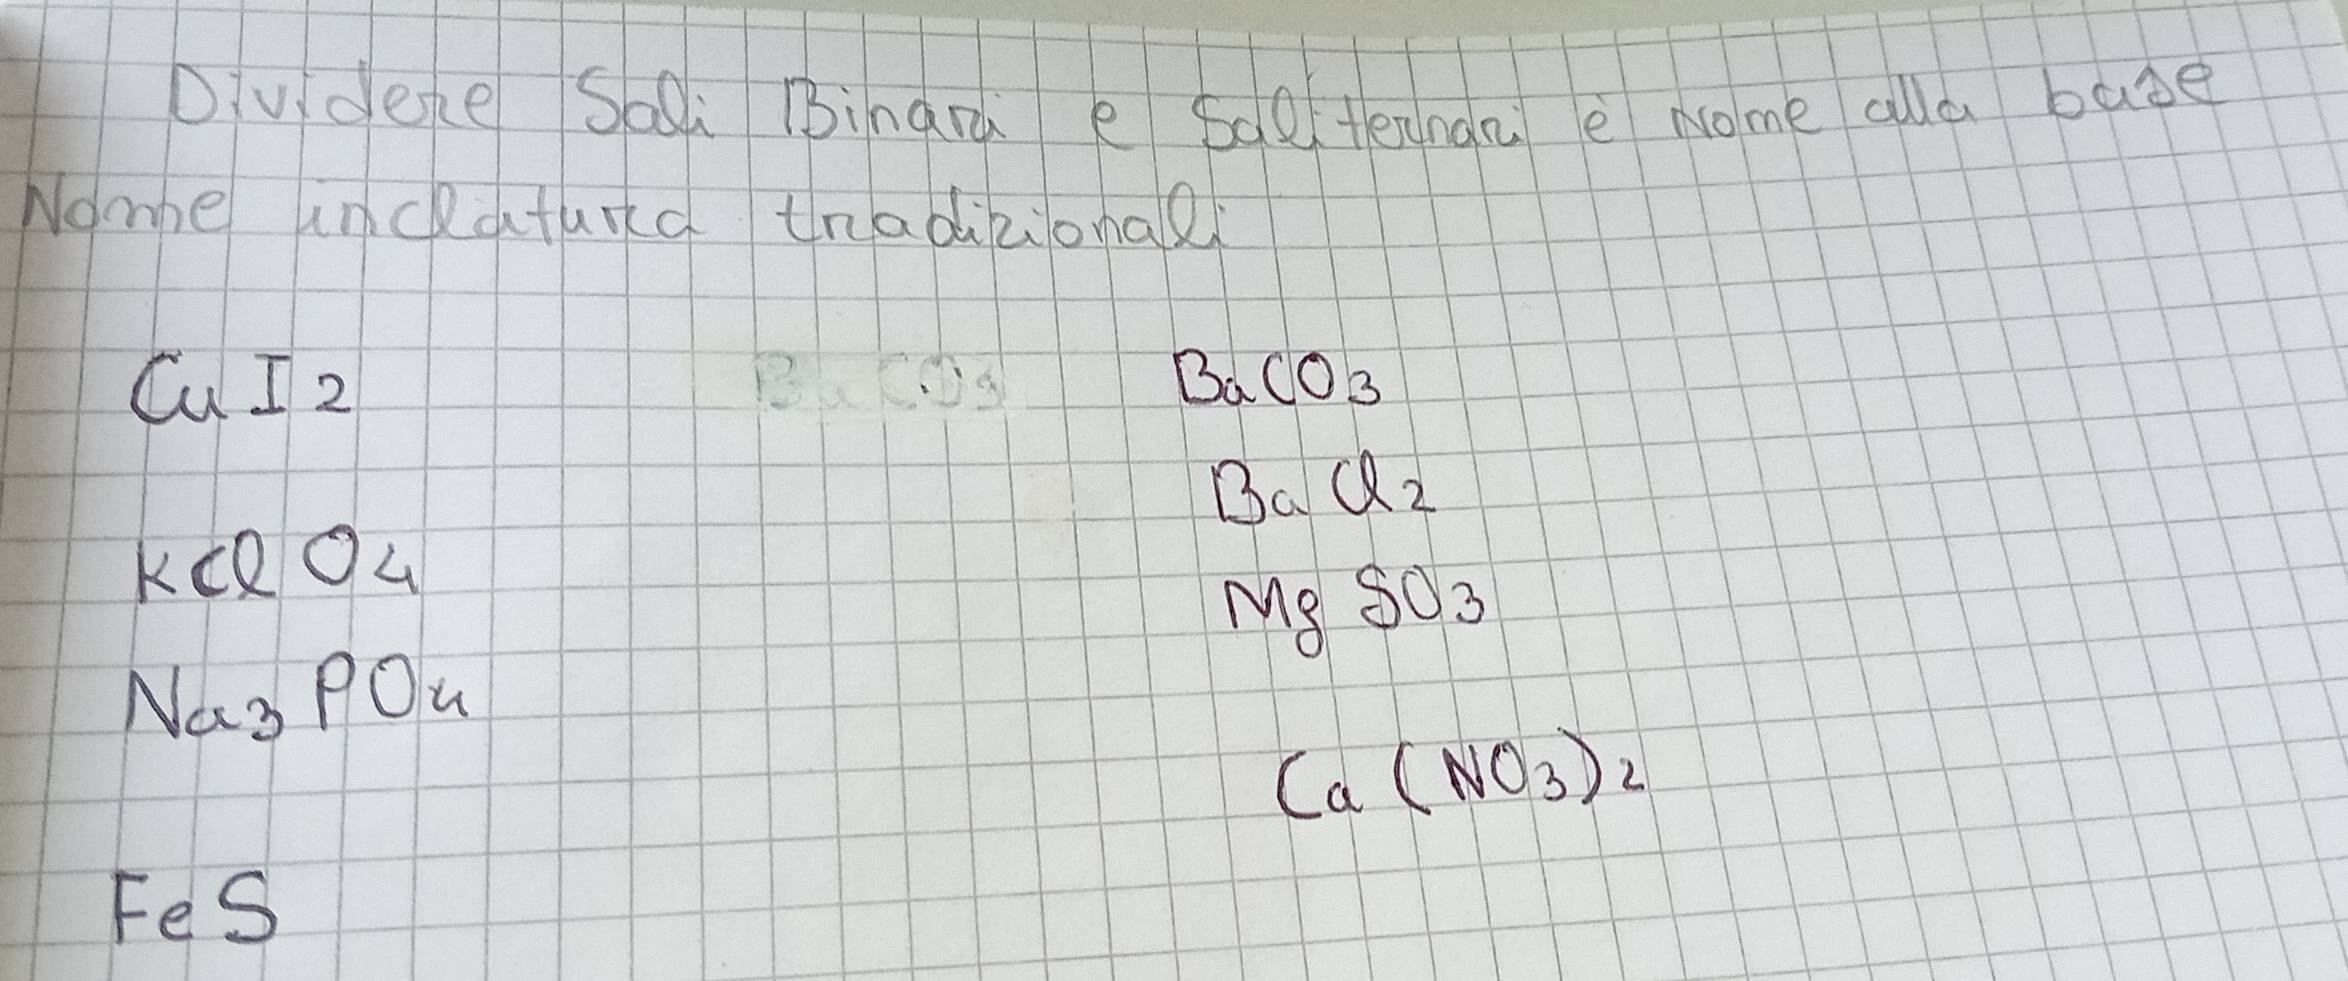 Dividere Sali Binari e Sali ternari e Nome alla base
Nome inclatura tradizionali
CuI2
BaCO3
BaCO3
BaCl2
KClO4
MgSO3
Na3PO4
Ca(NO3)2
FeS